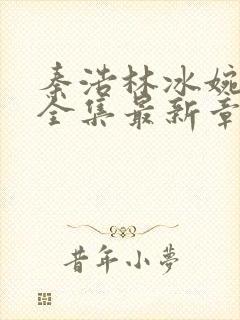 秦浩林冰婉
全集最新章
昔年小夢